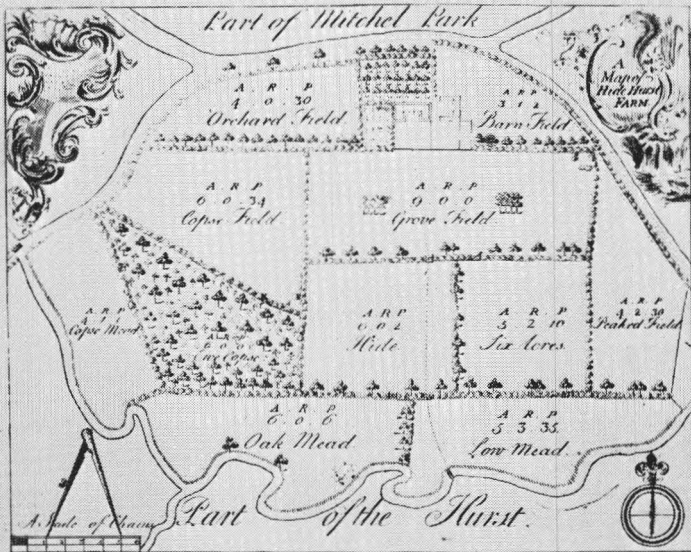 Part of Mitchel Park
A
Map of
Hide Hurst
FARM
A R P
4 0 30
Orchard Field
A R P
3 1 2
Barn Field
A R P
6 0 34
Copse Field
A R P
9 0 0
Grove Field
A R P
Copse Mead
Copse
A R P
6 0 2
Hide
A R P
5 2 10
Six Acres
A R P
4 2 30
Peaked Field
A R P
6 0 6
Oak Mead
A R P
5 3 35
Low Mead
A Scale of Chains
Part of the Hurst.